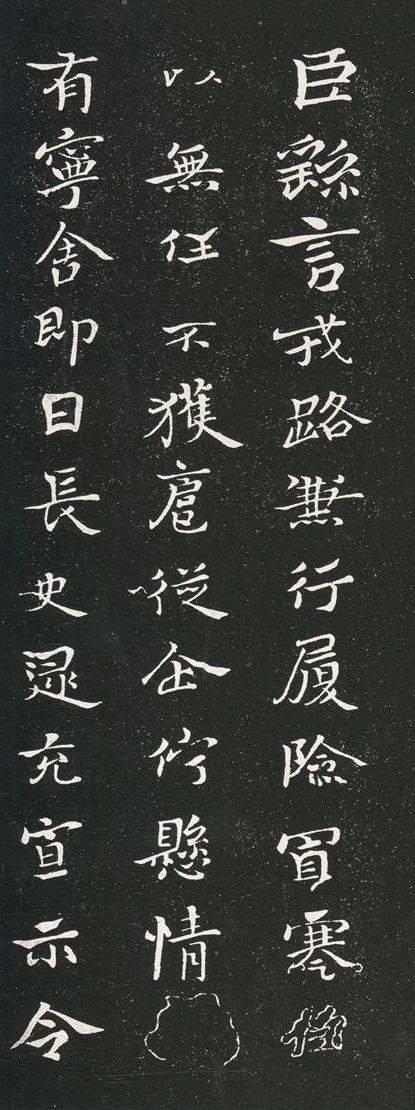 臣繇言戎路兼行履險冒寒臣
以無任不獲扈從企佇懸情
有寧舍即日長史逯充宣示令